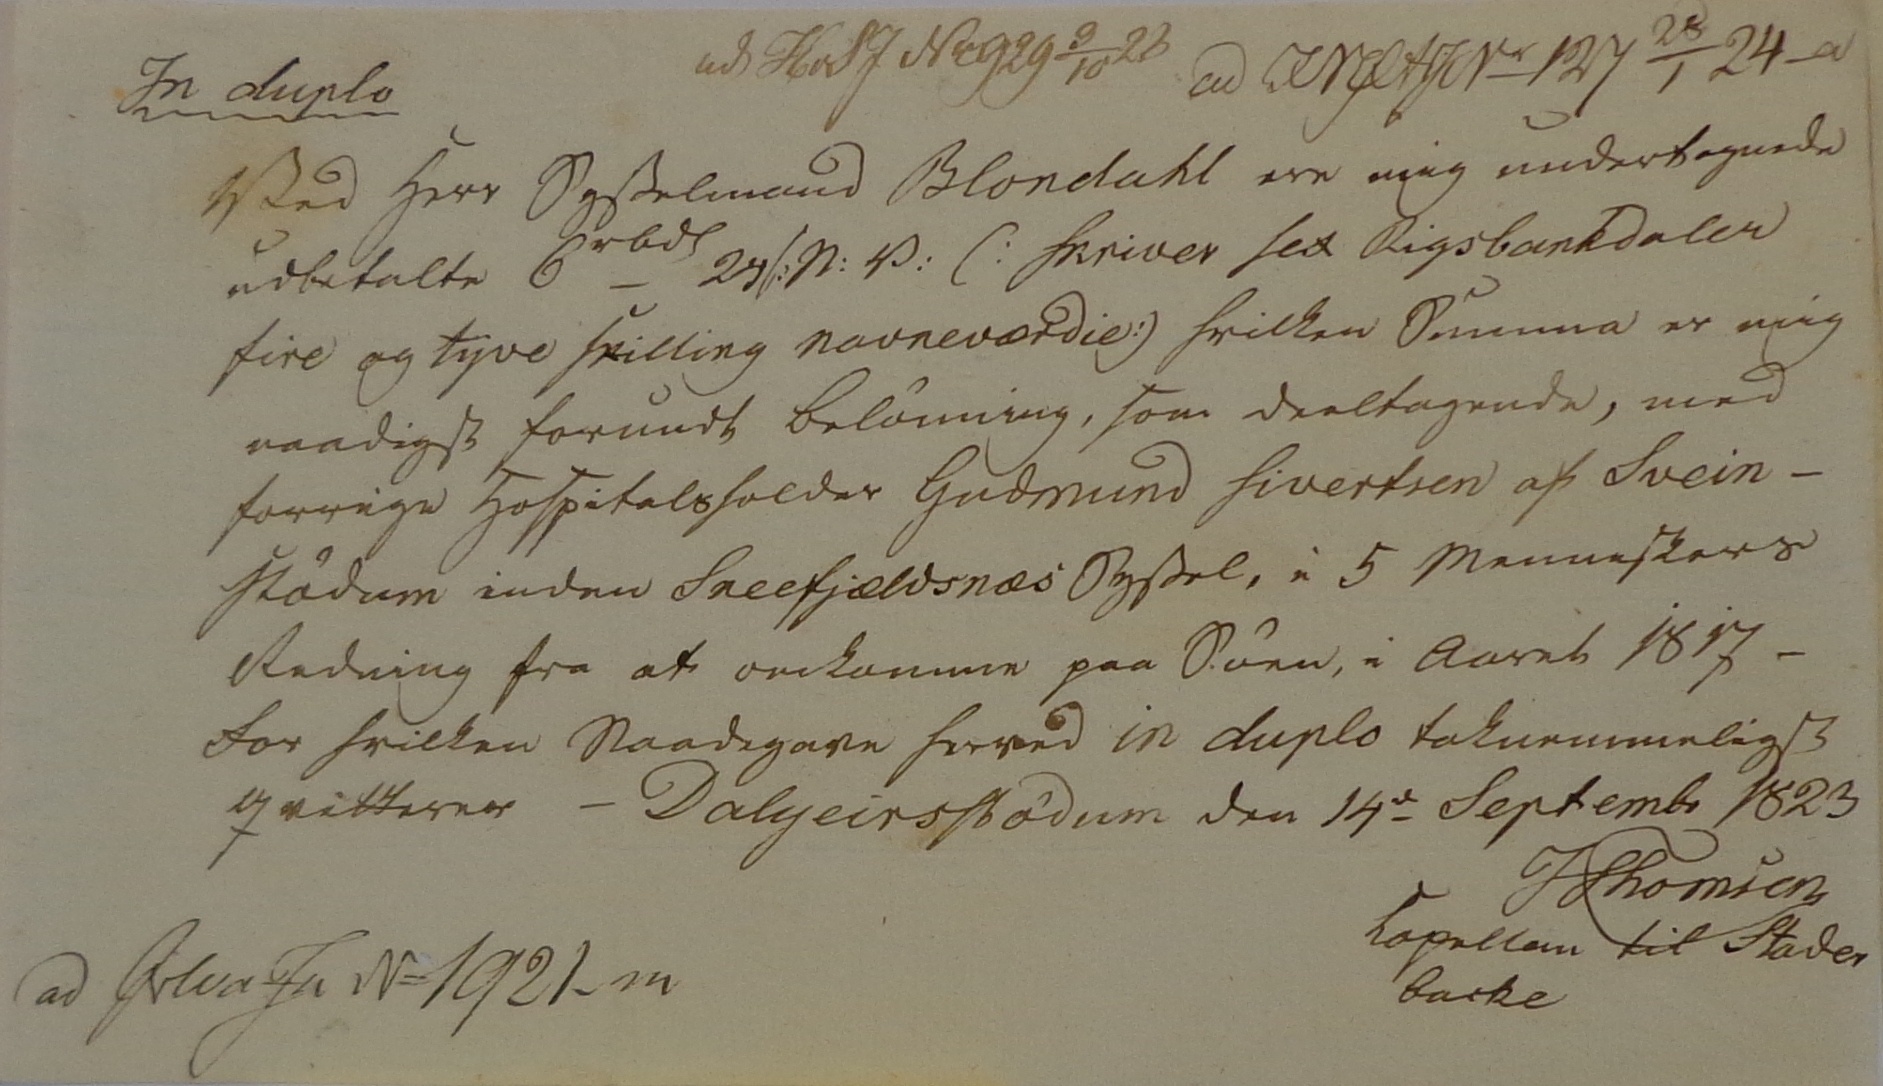 In duplo
ad No 929 9/10 23
ad No 127 28/1 24 a
Ved Herr Sysselmand Blondahl ere mig undertegnede
udbetalte 6 rbdl – 24 s: N: V: (: skriver sex Rigsbankdaler
fire og tyve skilling navneværdie:) hvilken Summa er mig
naadigst forundt Belönning, som deeltagende, med
forrige Hospitalsholder Gudmund Sivertsen af Svein-
stödum inden Sneefjældsnæs Syssel, i 5 Menneskers
Redning fra at omkomme paa Söen, i Aaret 1817 –
For hvilken Naadegave herved in duplo taknemmeligst
qvitterer – Dalgeirsstödum den 14de Septembr 1823
J Thomsen
Capellan til Stader
backe
ad No 1921 – m